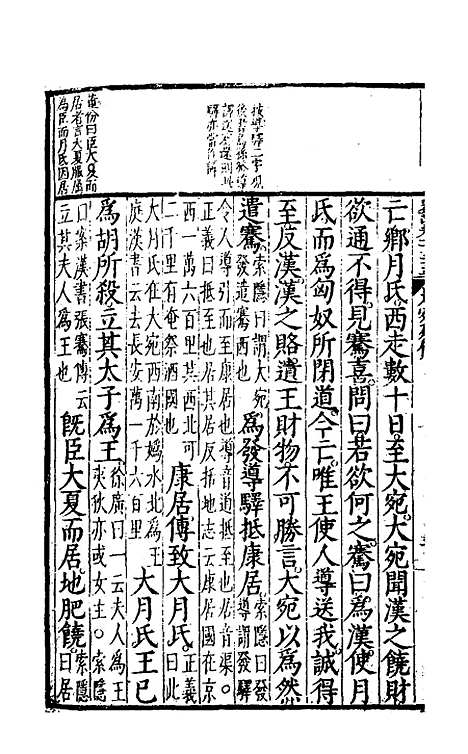 亡鄉月氏西走數十日至大宛大宛聞漢之饒財
欲通不得見騫喜問曰若欲何之騫曰爲漢使月
氏而爲匈奴所閉道今亡唯王使人導送我誠得
至反漢漢之賂遺王財物不可勝言大宛以爲然
遣騫索隱曰謂大宛發遣騫西也爲發導驛抵康居索隱曰發導謂發驛
令人導引而至康居也導音道抵至也居其居反括地志云康居國在京
西一萬六百里其西北可
二千里有奄蔡酒國也康居傳致大月氏正義曰此
大月氏在大宛西南於嬀水北爲王
庭漢書云去長安萬一千六百里大月氏王已
爲胡所殺立其太子爲王徐廣曰一云夫人爲王夷狄亦或女主索隱
曰案漢書張騫傳云
立其夫人爲王也既臣大夏而居地肥饒索隱曰居
董份曰臣大夏而
居者言大夏服屬
爲臣而月氏因居